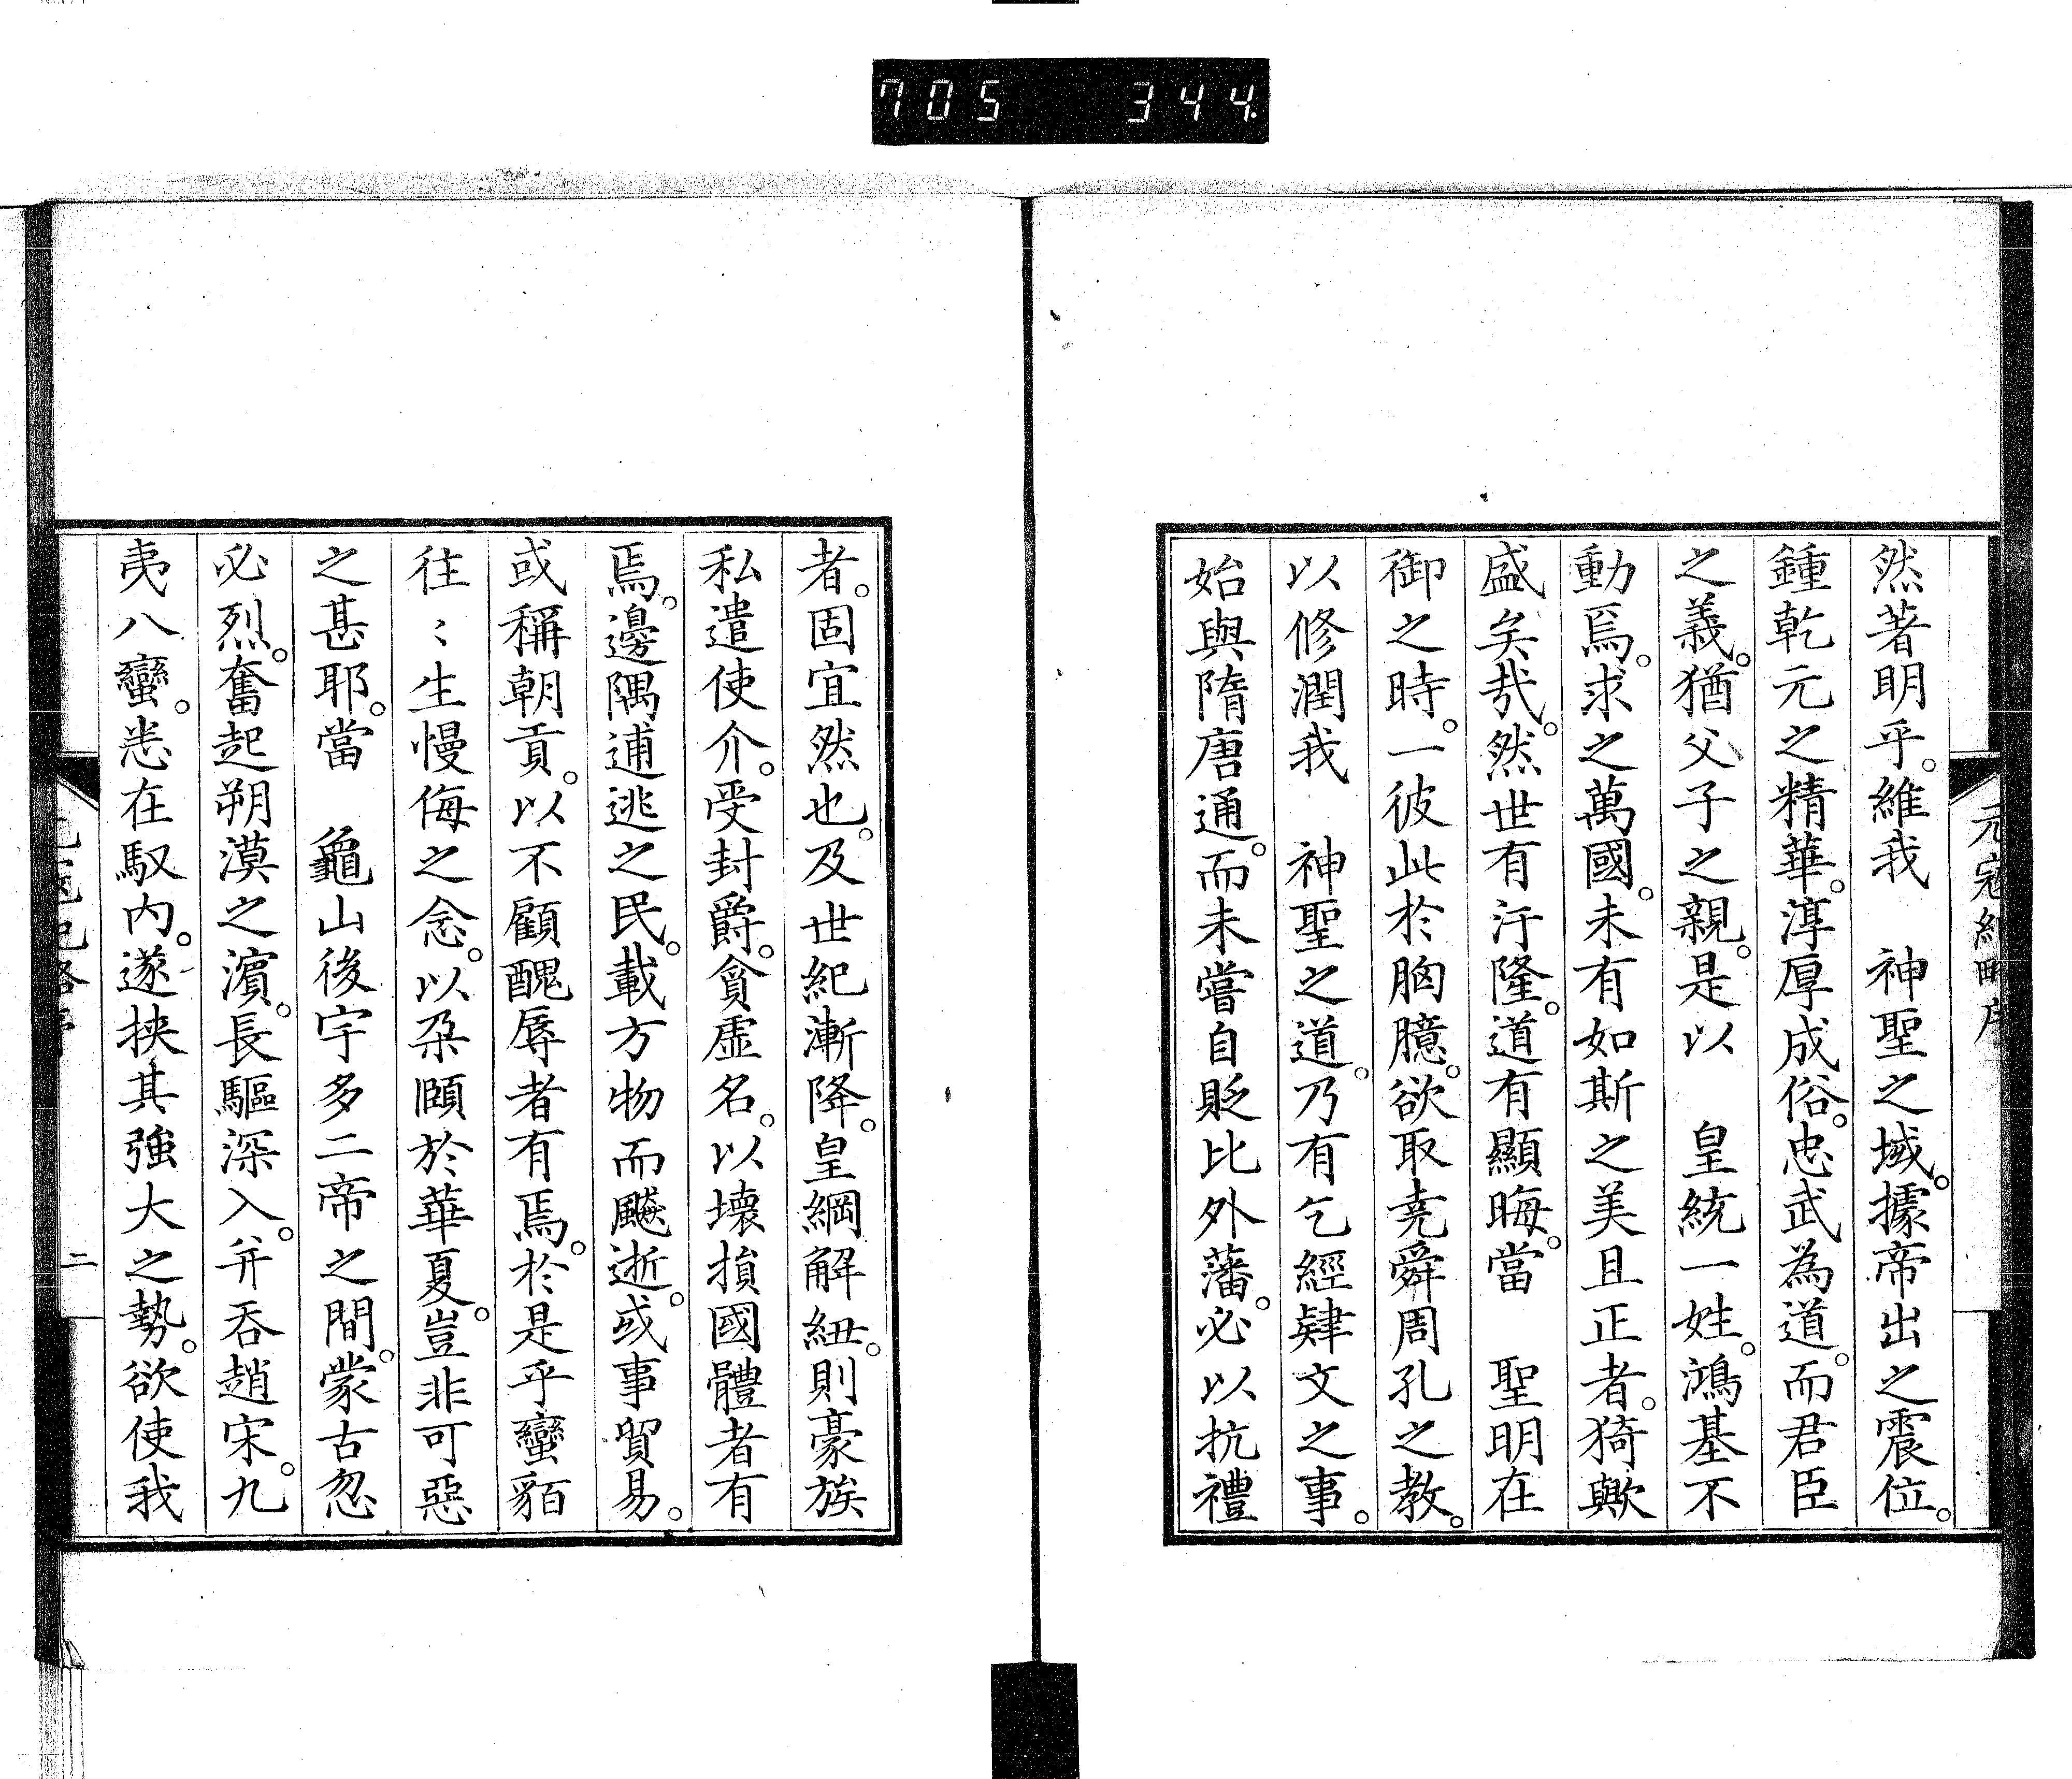 705 344.
元寇紀略序
然著明乎。維我　神聖之域。據帝出之震位。
鍾乾元之精華。淳厚成俗。忠武為道。而君臣
之義。猶父子之親。是以　皇統一姓。鴻基不
動焉。求之萬國。未有如斯之美且正者。猗歟
盛矣哉。然世有汙隆。道有顯晦。當　聖明在
御之時。一彼此於胸臆。欲取堯舜周孔之教。
以修潤我　神聖之道。乃有乞經肄文之事。
始與隋唐通。而未嘗自貶比外藩。必以抗禮
者。固宜然也。及世紀漸降。皇綱解紐。則豪族
私遣使介。受封爵。貪虛名。以壞損國體者有
焉。邊隅逋逃之民。載方物而颺逝。或事貿易。
或稱朝貢。以不顧醜辱者有焉。於是乎蠻貊
往〻生慢侮之念。以朶頤於華夏。豈非可惡
之甚耶。當　龜山後宇多二帝之間。蒙古忽
必烈。奮起朔漠之濱。長驅深入。并吞趙宋。九
夷八蠻。悉在馭內。遂挾其強大之勢。欲使我
二